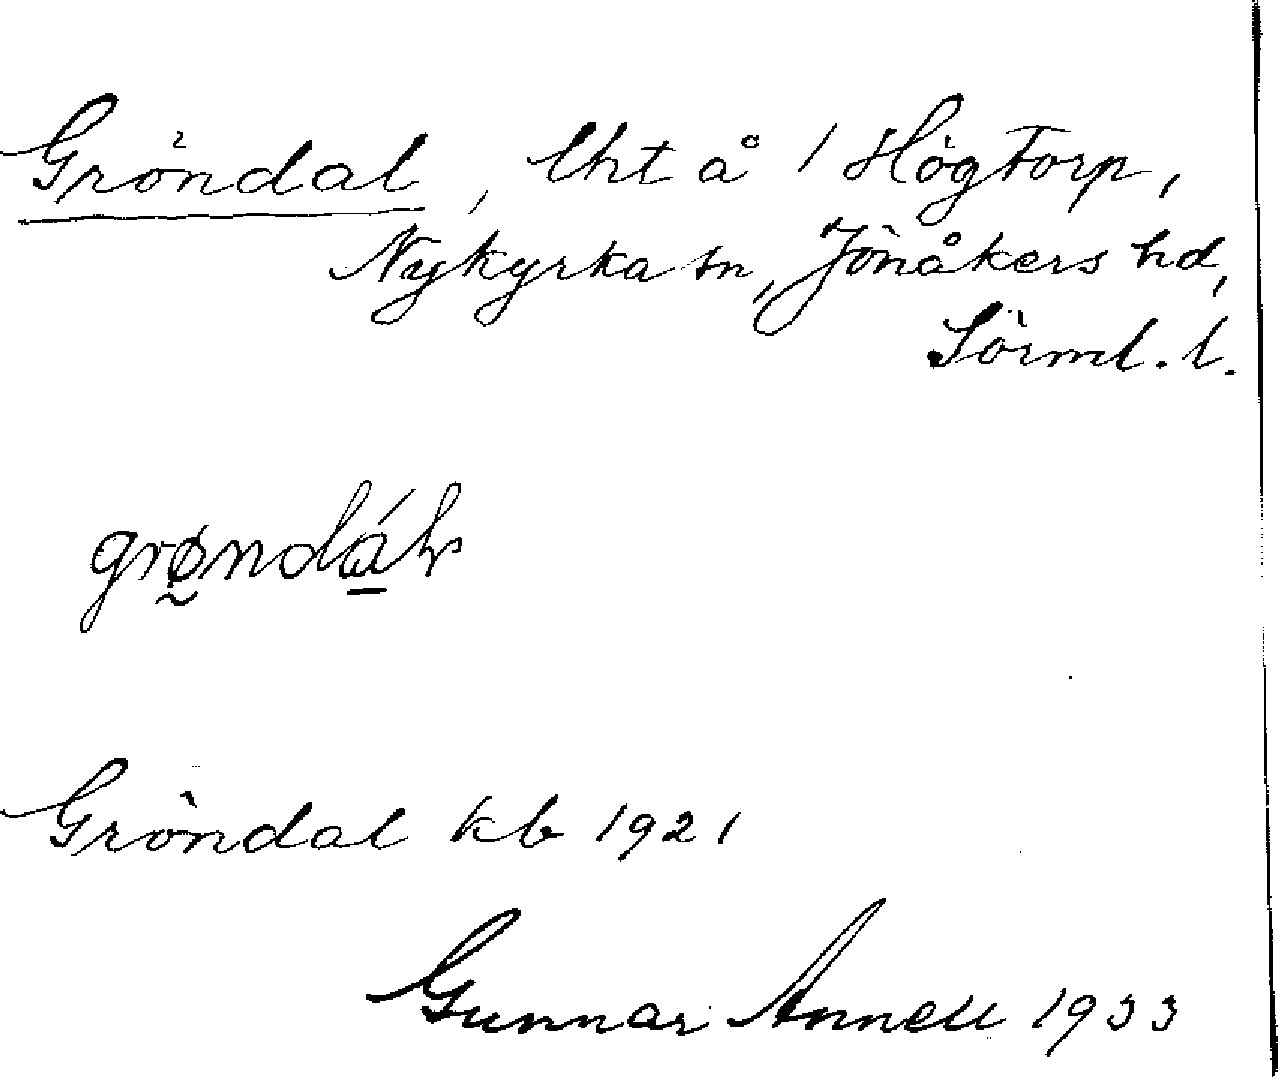 Gröndal, lht å 1 Högtorp,
Nykyrka sn, Jönåkers hd,
Sörml. l.
grøndál
Gröndal kb 1921
Gunnar Annell 1933